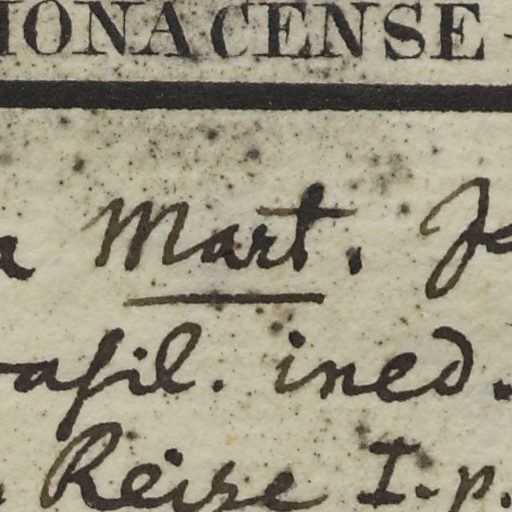 IONACENSE
a Mart. Je
rasil. ined.
Reise I. p.